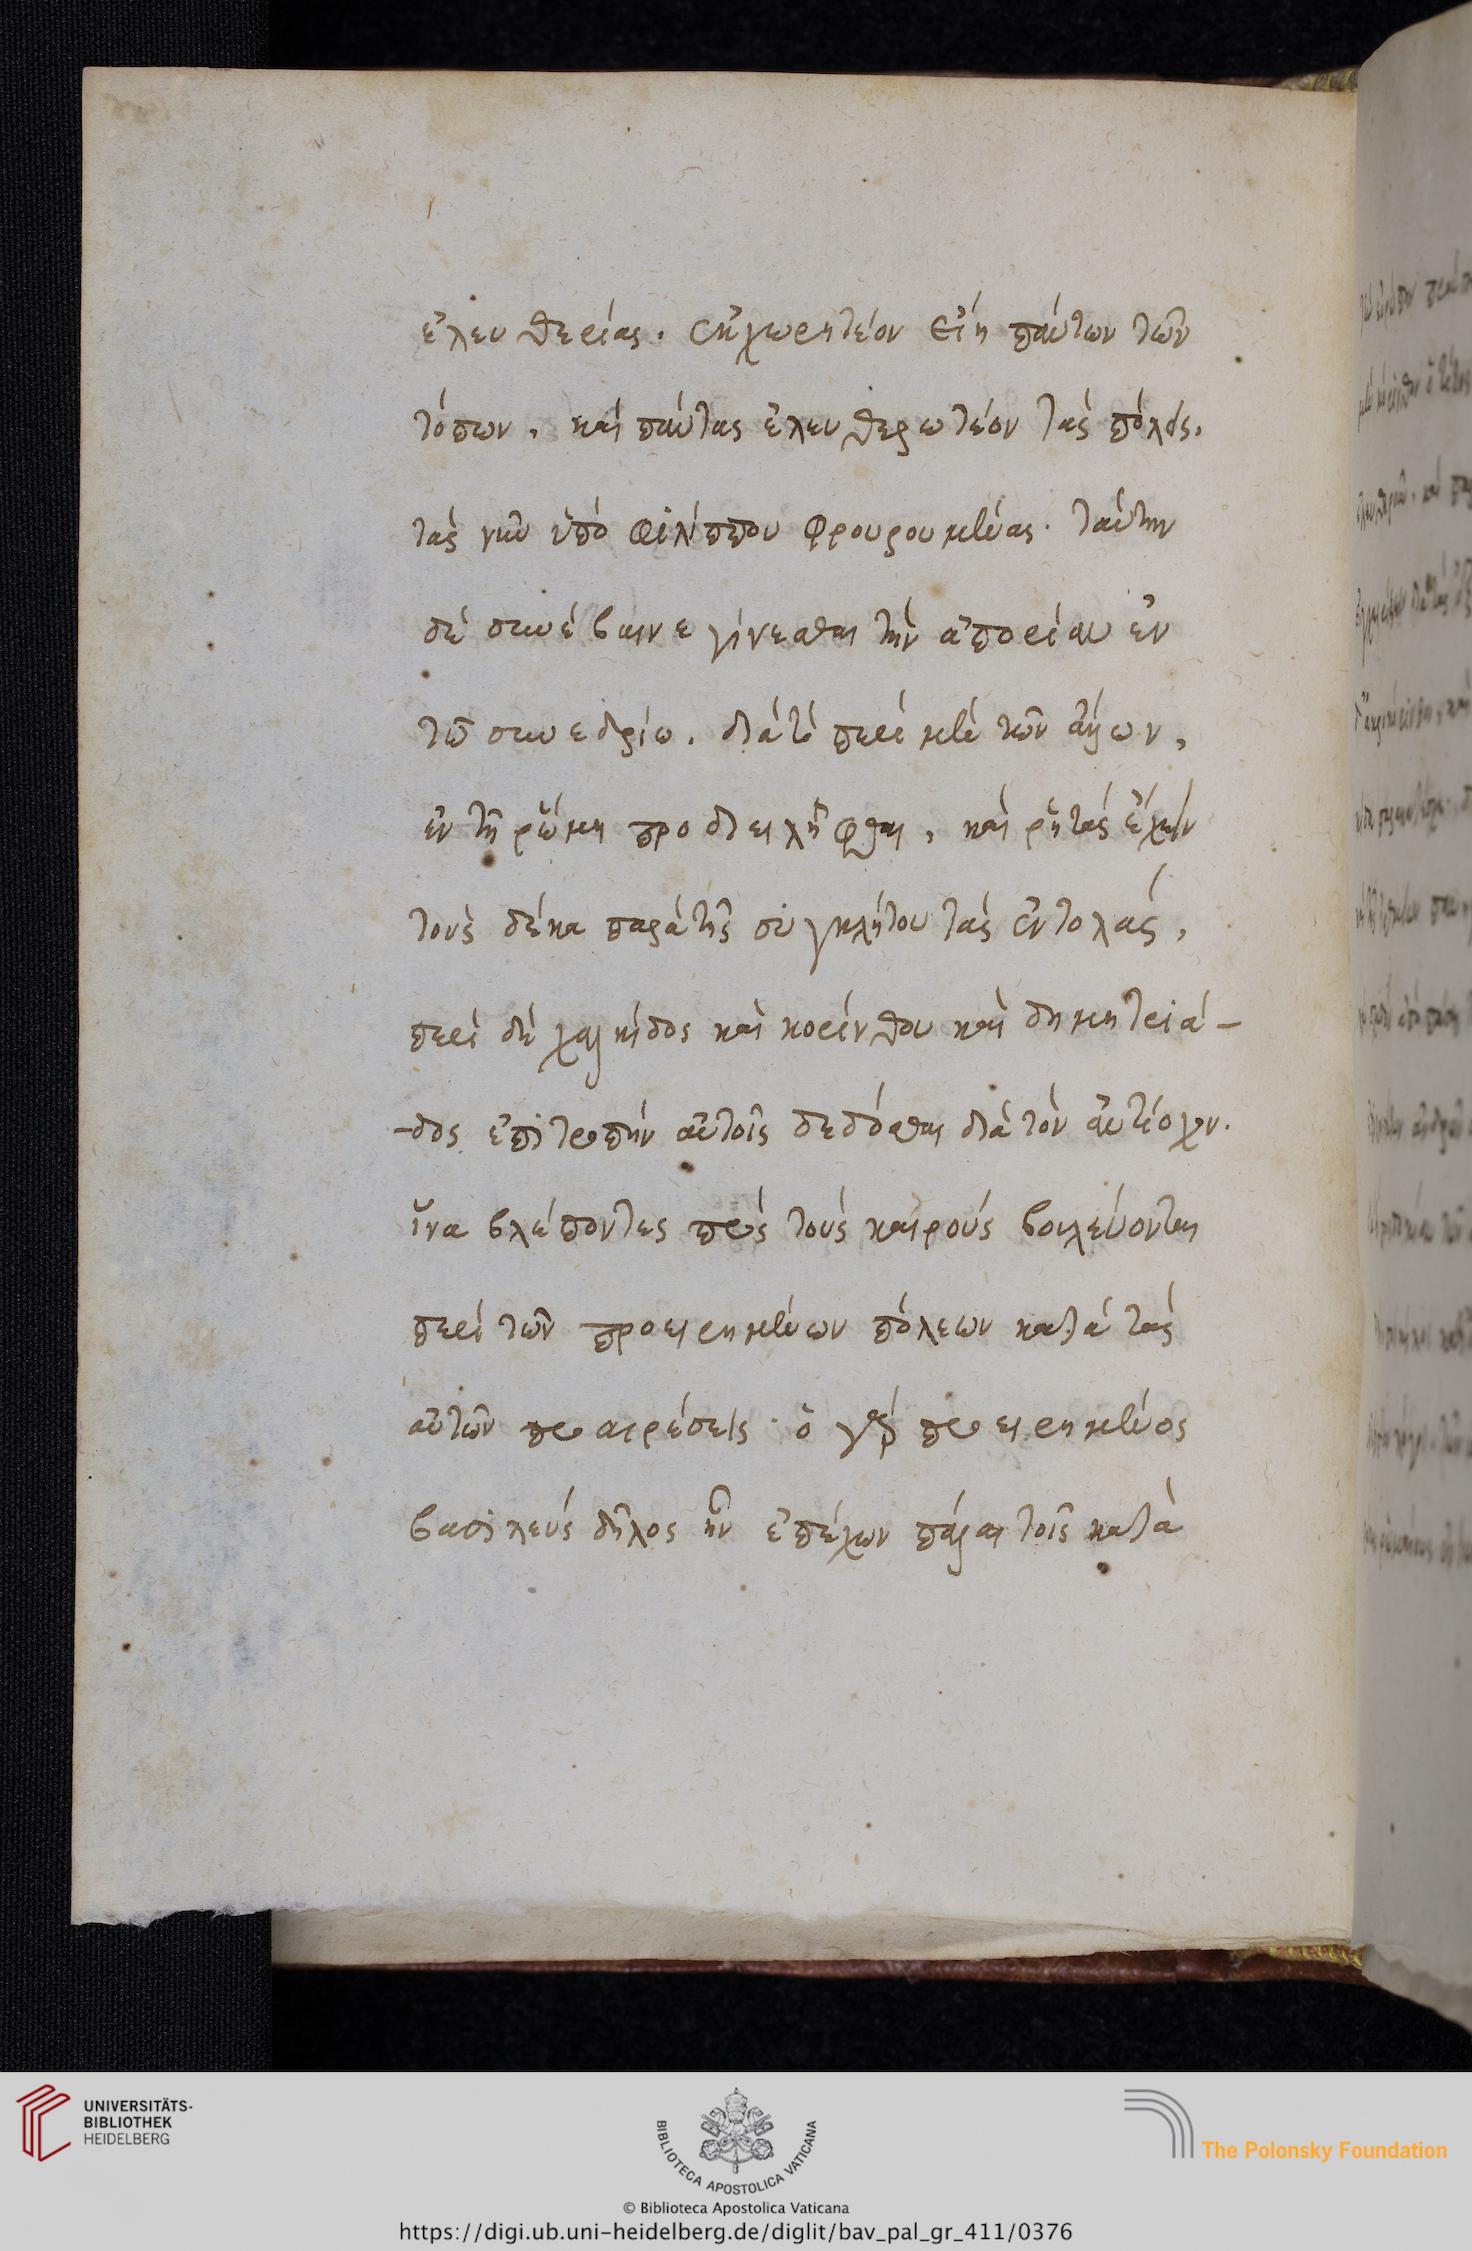 ἐλευθερίας. ἐκχωρητέον εἴη πάντων τῶν
τόπων, καὶ πάσας ἐλευθερωτέον τὰς πόλεις,
τὰς νῦν ὑπὸ φιλίππου φρουρουμένας. ταύτην
δὲ συνέβαινε γίνεσθαι τὴν ἀπορίαν ἐν
τῷ συνεδρίω. διὰ τὸ περὶ μὲν τῶν ἄλλων,
ἐν τῇ ῥώμη προδιειλῆφθαι, καὶ ῥητὰς ἔχειν
τοὺς δέκα παρὰ τῆς συγκλήτου τὰς ἐντολάς,
περὶ δὲ χαλκίδος καὶ κορίνθου καὶ δημητριά-
-δος ἐπιτροπὴν αὐτοῖς δεδόσθαι διὰ τὸν ἀντίοχον.
ἵνα βλέποντες πρὸς τοὺς καιροὺς βουλεύονται
περὶ τῶν προειρημένων πόλεων κατὰ τὰς
αὐτῶν προαιρέσεις. ὁ γὰρ προειρημένος
βασιλεὺς δῆλος ἦν ἐπέχων πάλαι τοῖς κατὰ
UNIVERSITÄTS-
BIBLIOTHEK
HEIDELBERG
BIBLIOTECA APOSTOLICA VATICANA
The Polonsky Foundation
© Biblioteca Apostolica Vaticana
https://digi.ub.uni-heidelberg.de/diglit/bav_pal_gr_411/0376